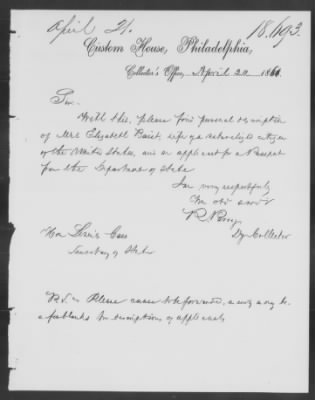 April 21.
18.693.
Custom House, Philadelphia,
Collector's Office, April 20 1860.
Sir.
With this, please find personal description
of Mrs Elizabeth wife of a naturalized citizen
of the United States, and an applicant for a Passport
from the Department of State
I am very respectfully
Your obt servt
Dy Collector
Hon Lewis Cass
Secretary of State
P.S. Please cause to be forwarded, a
few blanks for descriptions of applicants